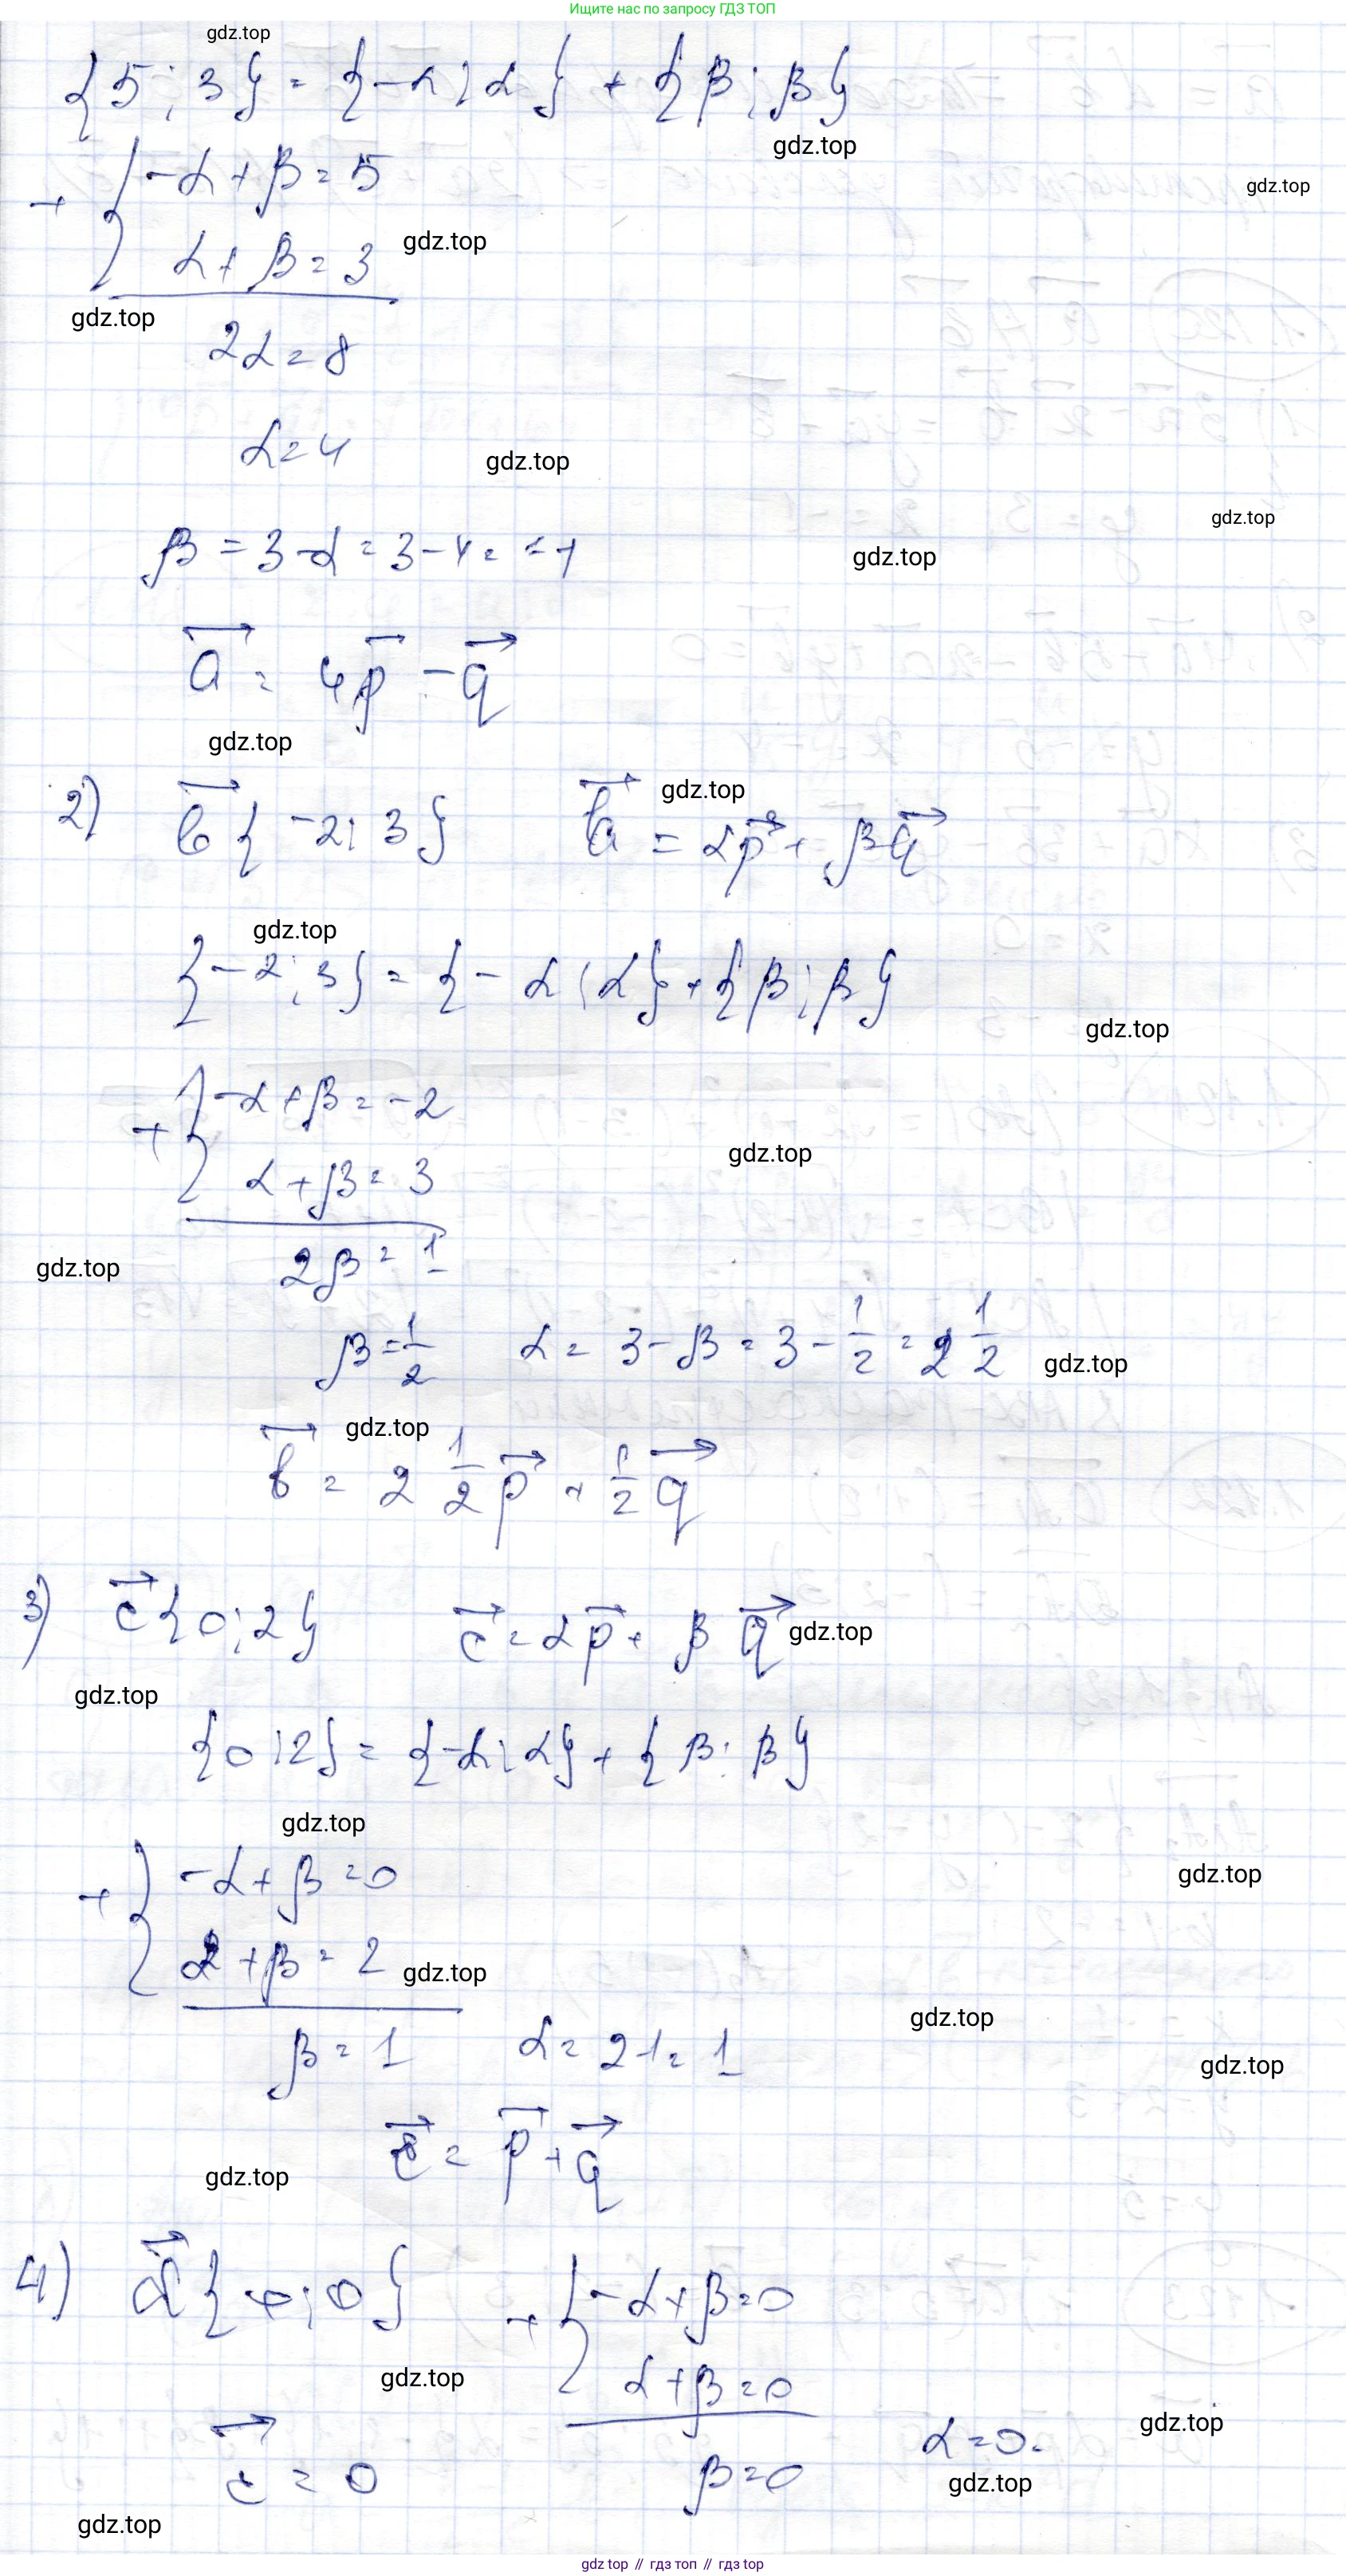 Ищите нас по запросу ГДЗ ТОП
gdz.top
{5; 3} = {-α; α} + {β; β}
gdz.top
gdz.top
+ { -α + β = 5
α + β = 3
gdz.top
gdz.top
2α = 8
α = 4
gdz.top
gdz.top
β = 3 - α = 3 - 4 = -1
gdz.top
a⃗ = 4p⃗ - q⃗
gdz.top
2) b⃗ {-2; 3} b⃗ = αp⃗ + βq⃗
gdz.top
gdz.top
{-2; 3} = {-α; α} + {β; β}
gdz.top
+ { -α + β = -2
α + β = 3
gdz.top
2β = 1
gdz.top
β = 1/2 α = 3 - β = 3 - 1/2 = 2 1/2
gdz.top
gdz.top
b⃗ = 2 1/2 p⃗ + 1/2 q⃗
3) c⃗ {0; 2} c⃗ = αp⃗ + βq⃗
gdz.top
gdz.top
{0; 2} = {-α; α} + {β; β}
gdz.top
+ { -α + β = 0
gdz.top
α + β = 2
gdz.top
gdz.top
β = 1 α = 2-1 = 1
gdz.top
c⃗ = p⃗ + q⃗
gdz.top
4) d⃗ {0; 0} + { -α + β = 0
α + β = 0
gdz.top
gdz.top
c⃗ = 0 β = 0 α = 0.
gdz.top
gdz.top
gdz top // гдз топ // гдз top